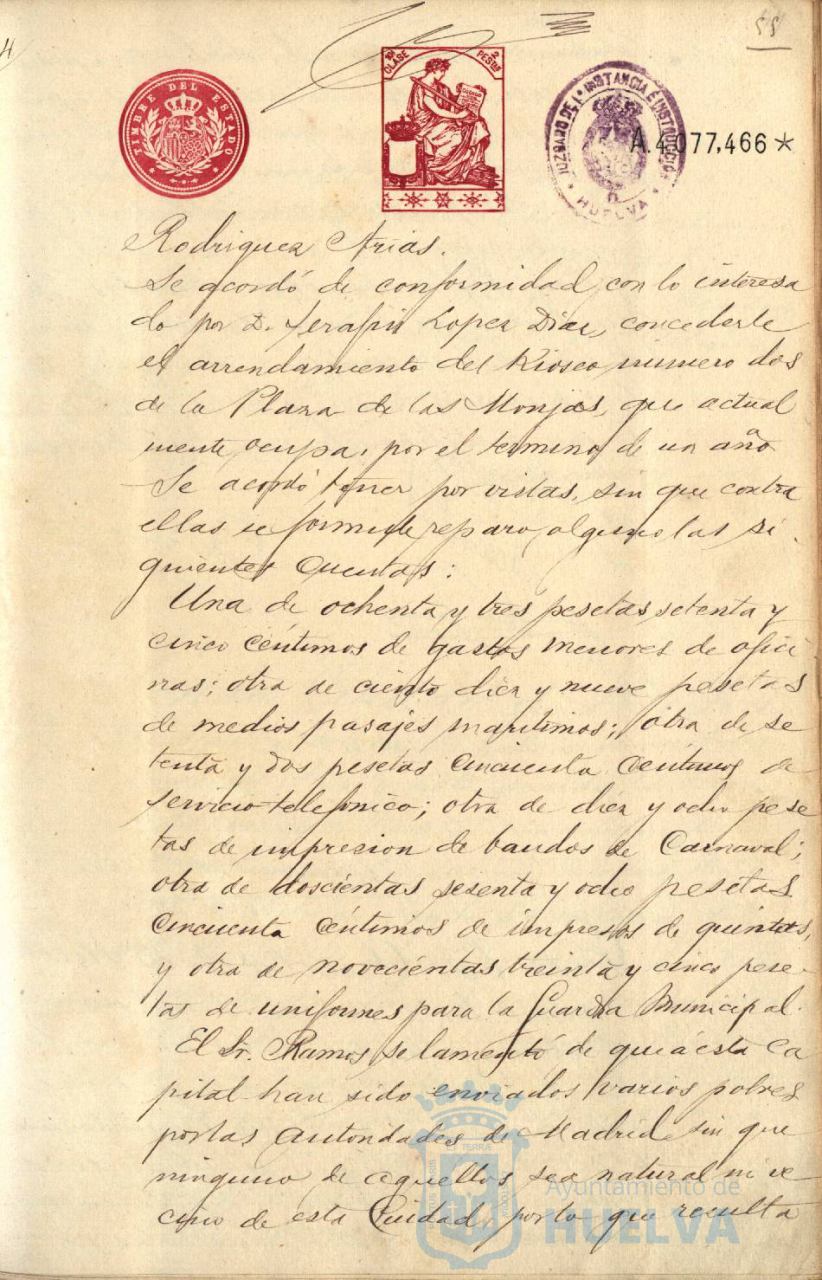 55
TIMBRE DEL ESTADO
10ª CLASE 2 PESETAS
JUZGADO DE 1ª INSTANCIA É INSTRUCCIÓN
HUELVA
A.4.077,466*
Rodriguez Arias.
Se acordó de conformidad con lo interesa
do por D. Serafin Lopez Diaz, concederle
el arrendamiento del Kiosco número dos
de la Plaza de las Monjas, que actual
mente ocupa, por el termino de un año
Se acordó tener por vistas, sin que contra
ellas se formule reparo alguno las si
guientes cuentas:
Una de ochenta y tres pesetas setenta y
cinco céntimos de gastos menores de ofici
nas; otra de ciento diez y nueve pesetas
de medios pasajes maritimos; otra de se
tenta y dos pesetas cincuenta céntimos de
servicio telefónico; otra de diez y ocho pese
tas de impresion de bandos de Carnaval;
otra de doscientas sesenta y ocho pesetas
cincuenta céntimos de impresos de quintas,
y otra de novecientas treinta y cinco pese-
tas de uniformes para la Guardia Municipal.
El Sr. Ramos se lamentó de que á esta Ca
pital han sido enviados varios pobres
por las autoridades de Madrid sin que
ninguno de aquellos sea natural ni ve-
cino de esta Ciudad, por lo que resulta
Ayuntamiento de
HUELVA